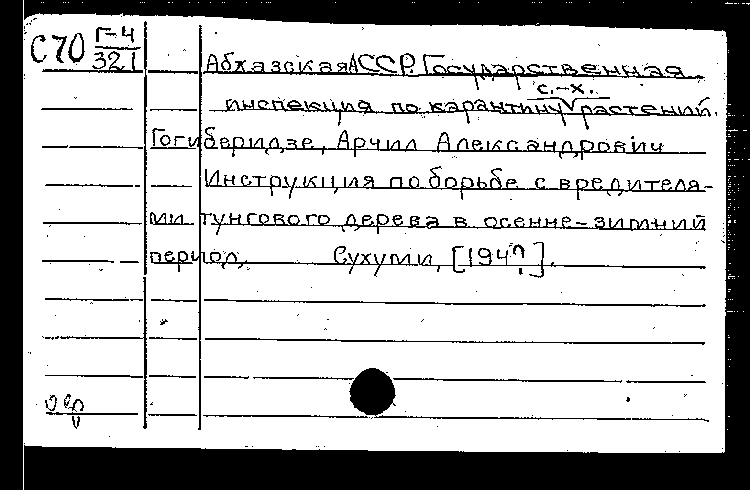 С70 Г-4
321
Абхазская АССР. Государственная
с.-х.
инспекция по карантину растений.
Гогиберидзе, Арчил Александрович
Инструкция по борьбе с вредителя-
ми тунгового дерева в осенне-зимний
период.    Сухуми, [194?].